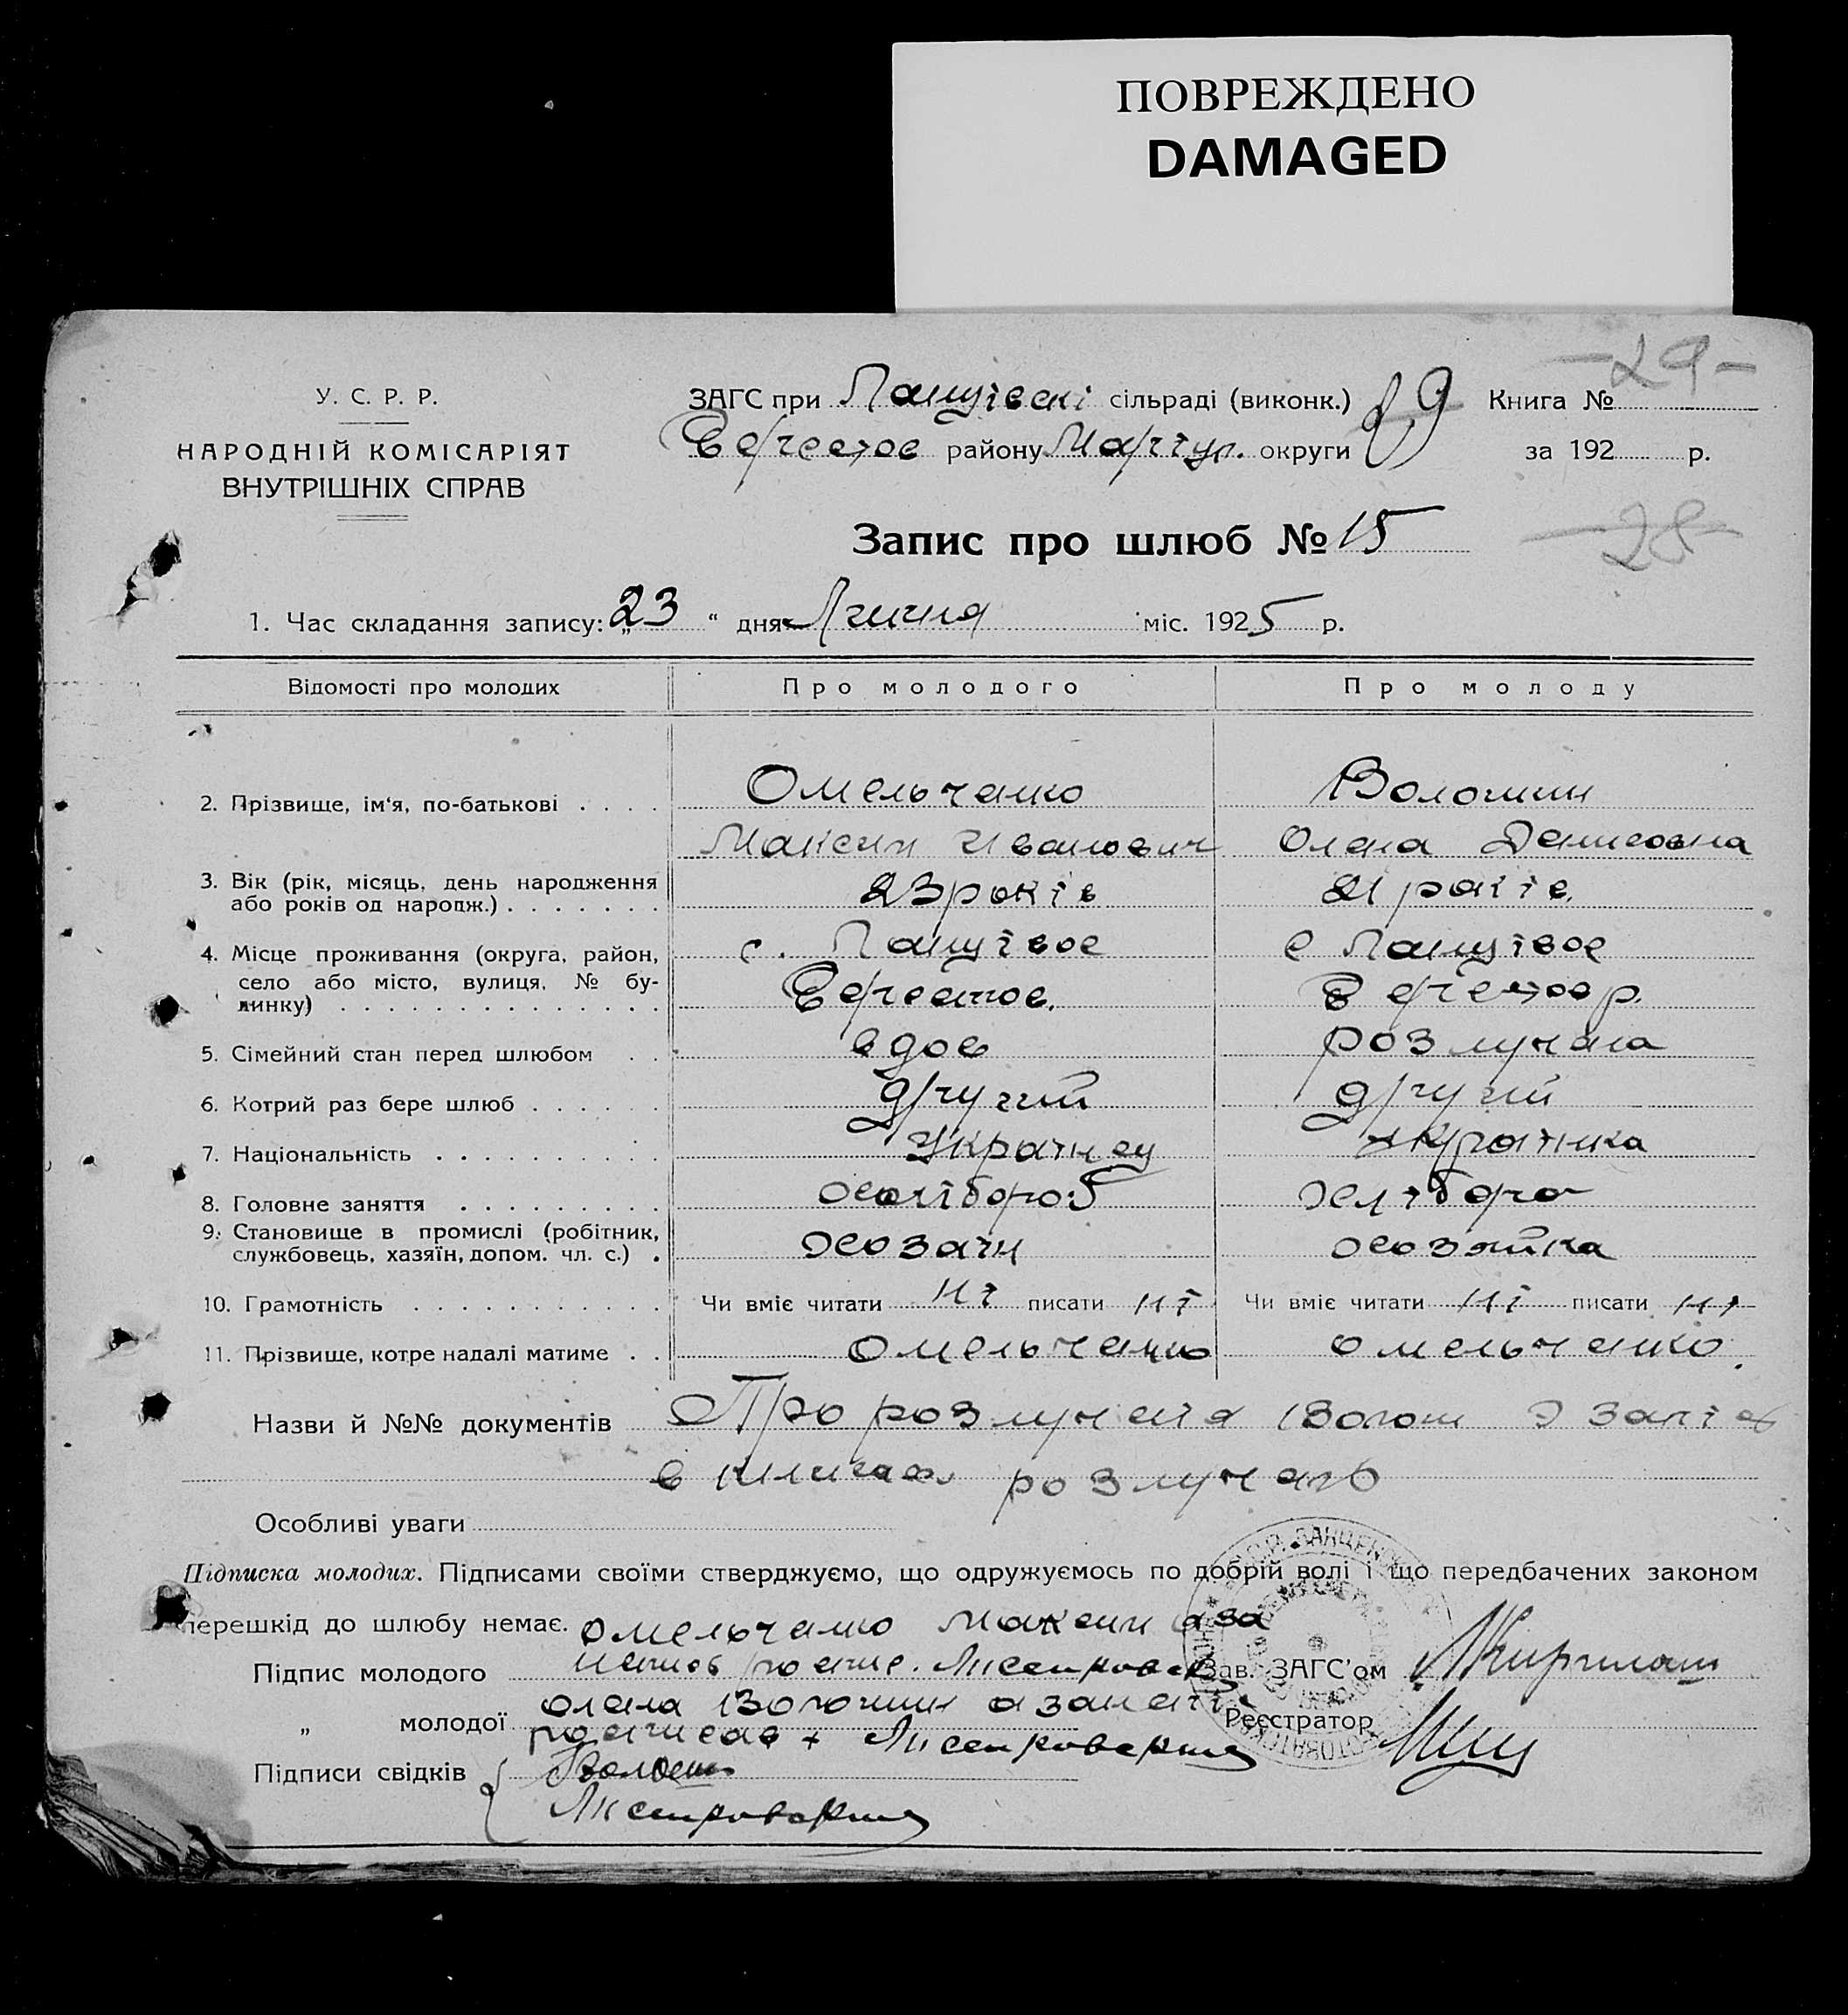 ПОВРЕЖДЕНО
DAMAGED
-29-
У. С. Р. Р.
НАРОДНІЙ КОМІСАРІЯТ
ВНУТРІШНІХ СПРАВ
ЗАГС при сільраді (виконк.) 29 Книга №
району Маріуп. округи за 192 р.
Запис про шлюб № 15
-28-
1. Час складання запису: „23“ дня міс. 1925 р.
Відомості про молодих Про молодого Про молоду
2. Прізвище, ім'я, по-батькові . . . . Омельченко Волошин
Максим Иванович Олена Денисовна
3. Вік (рік, місяць, день народження або років од народж.) . . . . . . . 23 років 21 років
4. Місце проживання (округа, район, село або місто, вулиця, № будинку) . . . . . . . . . . . . . . с. с
5. Сімейний стан перед шлюбом . . вдов розлучена
6. Котрий раз бере шлюб . . . . . . другий другий
7. Національність . . . . . . . . . . Украінец Украінка
8. Головне заняття . . . . . . . . . хлібороб хлібороб
9. Становище в промислі (робітник, службовець, хазяїн, допом. чл. с.) . хозаін хозяйка
10. Грамотність . . . . . . . . . . . Чи вміє читати ні писати ні Чи вміє читати ні писати ні
11. Прізвище, котре надалі матиме . . Омельченко Омельченко
Назви й №№ документів Про розлучення Волош
в книгах розлучень
Особливі уваги
Підписка молодих. Підписами своїми стверджуємо, що одружуємось по добрій волі і що передбачених законом
перешкід до шлюбу немає. Омельченко Максим а за
Підпис молодого Зав. ЗАГС'ом
Олена Волошин а за
„ молодої Реєстратор
Підписи свідків